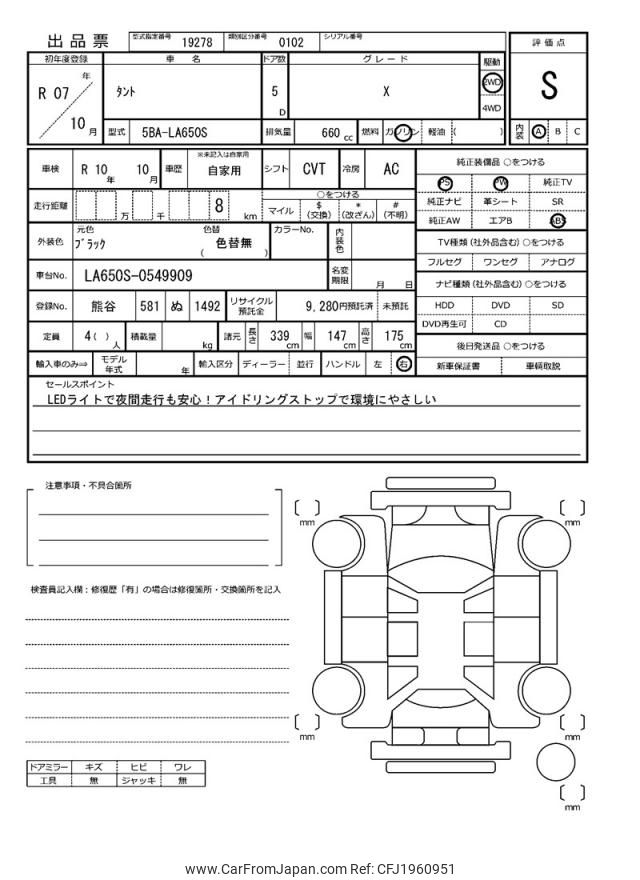 出品票 型式指定番号 19278 類別区分番号 0102 シリアル番号
評価点
S
初年度登録 車名 ドア数 グレード 駆動
年
R 07
10 月
タント 5 D X 2WD
4WD
型式 5BA-LA650S 排気量 660 cc 燃料 ガソリン 軽油 ( )
内装 A B C
車検 R 10 年 10 月 車歴 ※未記入は自家用 自家用 シフト CVT 冷房 AC
走行距離 万 千 8 km
○をつける
マイル $ (交換) * (改ざん) # (不明)
外装色 元色 ﾌﾞﾗｯｸ 色替 色替無 ( ) カラーNo. 内装色
車台No. LA650S-0549909 名変期限 月 日
登録No. 熊谷 581 ぬ 1492 リサイクル預託金 9,280円預託済 未預託
定員 4( ) 人 積載量 kg 諸元 長さ 339 cm 幅 147 cm 高さ 175 cm
輸入車のみ⇒ モデル年式 年 輸入区分 ディーラー 並行 ハンドル 左 右
純正装備品 ○をつける
PS PW 純正TV
純正ナビ 革シート SR
純正AW エアB ABS
TV種類 (社外品含む) ○をつける
フルセグ ワンセグ アナログ
ナビ種類 (社外品含む) ○をつける
HDD DVD SD
DVD再生可 CD
後日発送品 ○をつける
新車保証書 車輌取説
セールスポイント
LEDライトで夜間走行も安心！アイドリングストップで環境にやさしい
注意事項・不具合箇所
検査員記入欄：修復歴「有」の場合は修復箇所・交換箇所を記入
[ ] mm
[ ] mm
[ ] mm
[ ] mm
[ ] mm
ドアミラー キズ ヒビ ワレ
工具 無 ジャッキ 無
www.CarFromJapan.com Ref: CFJ1960951